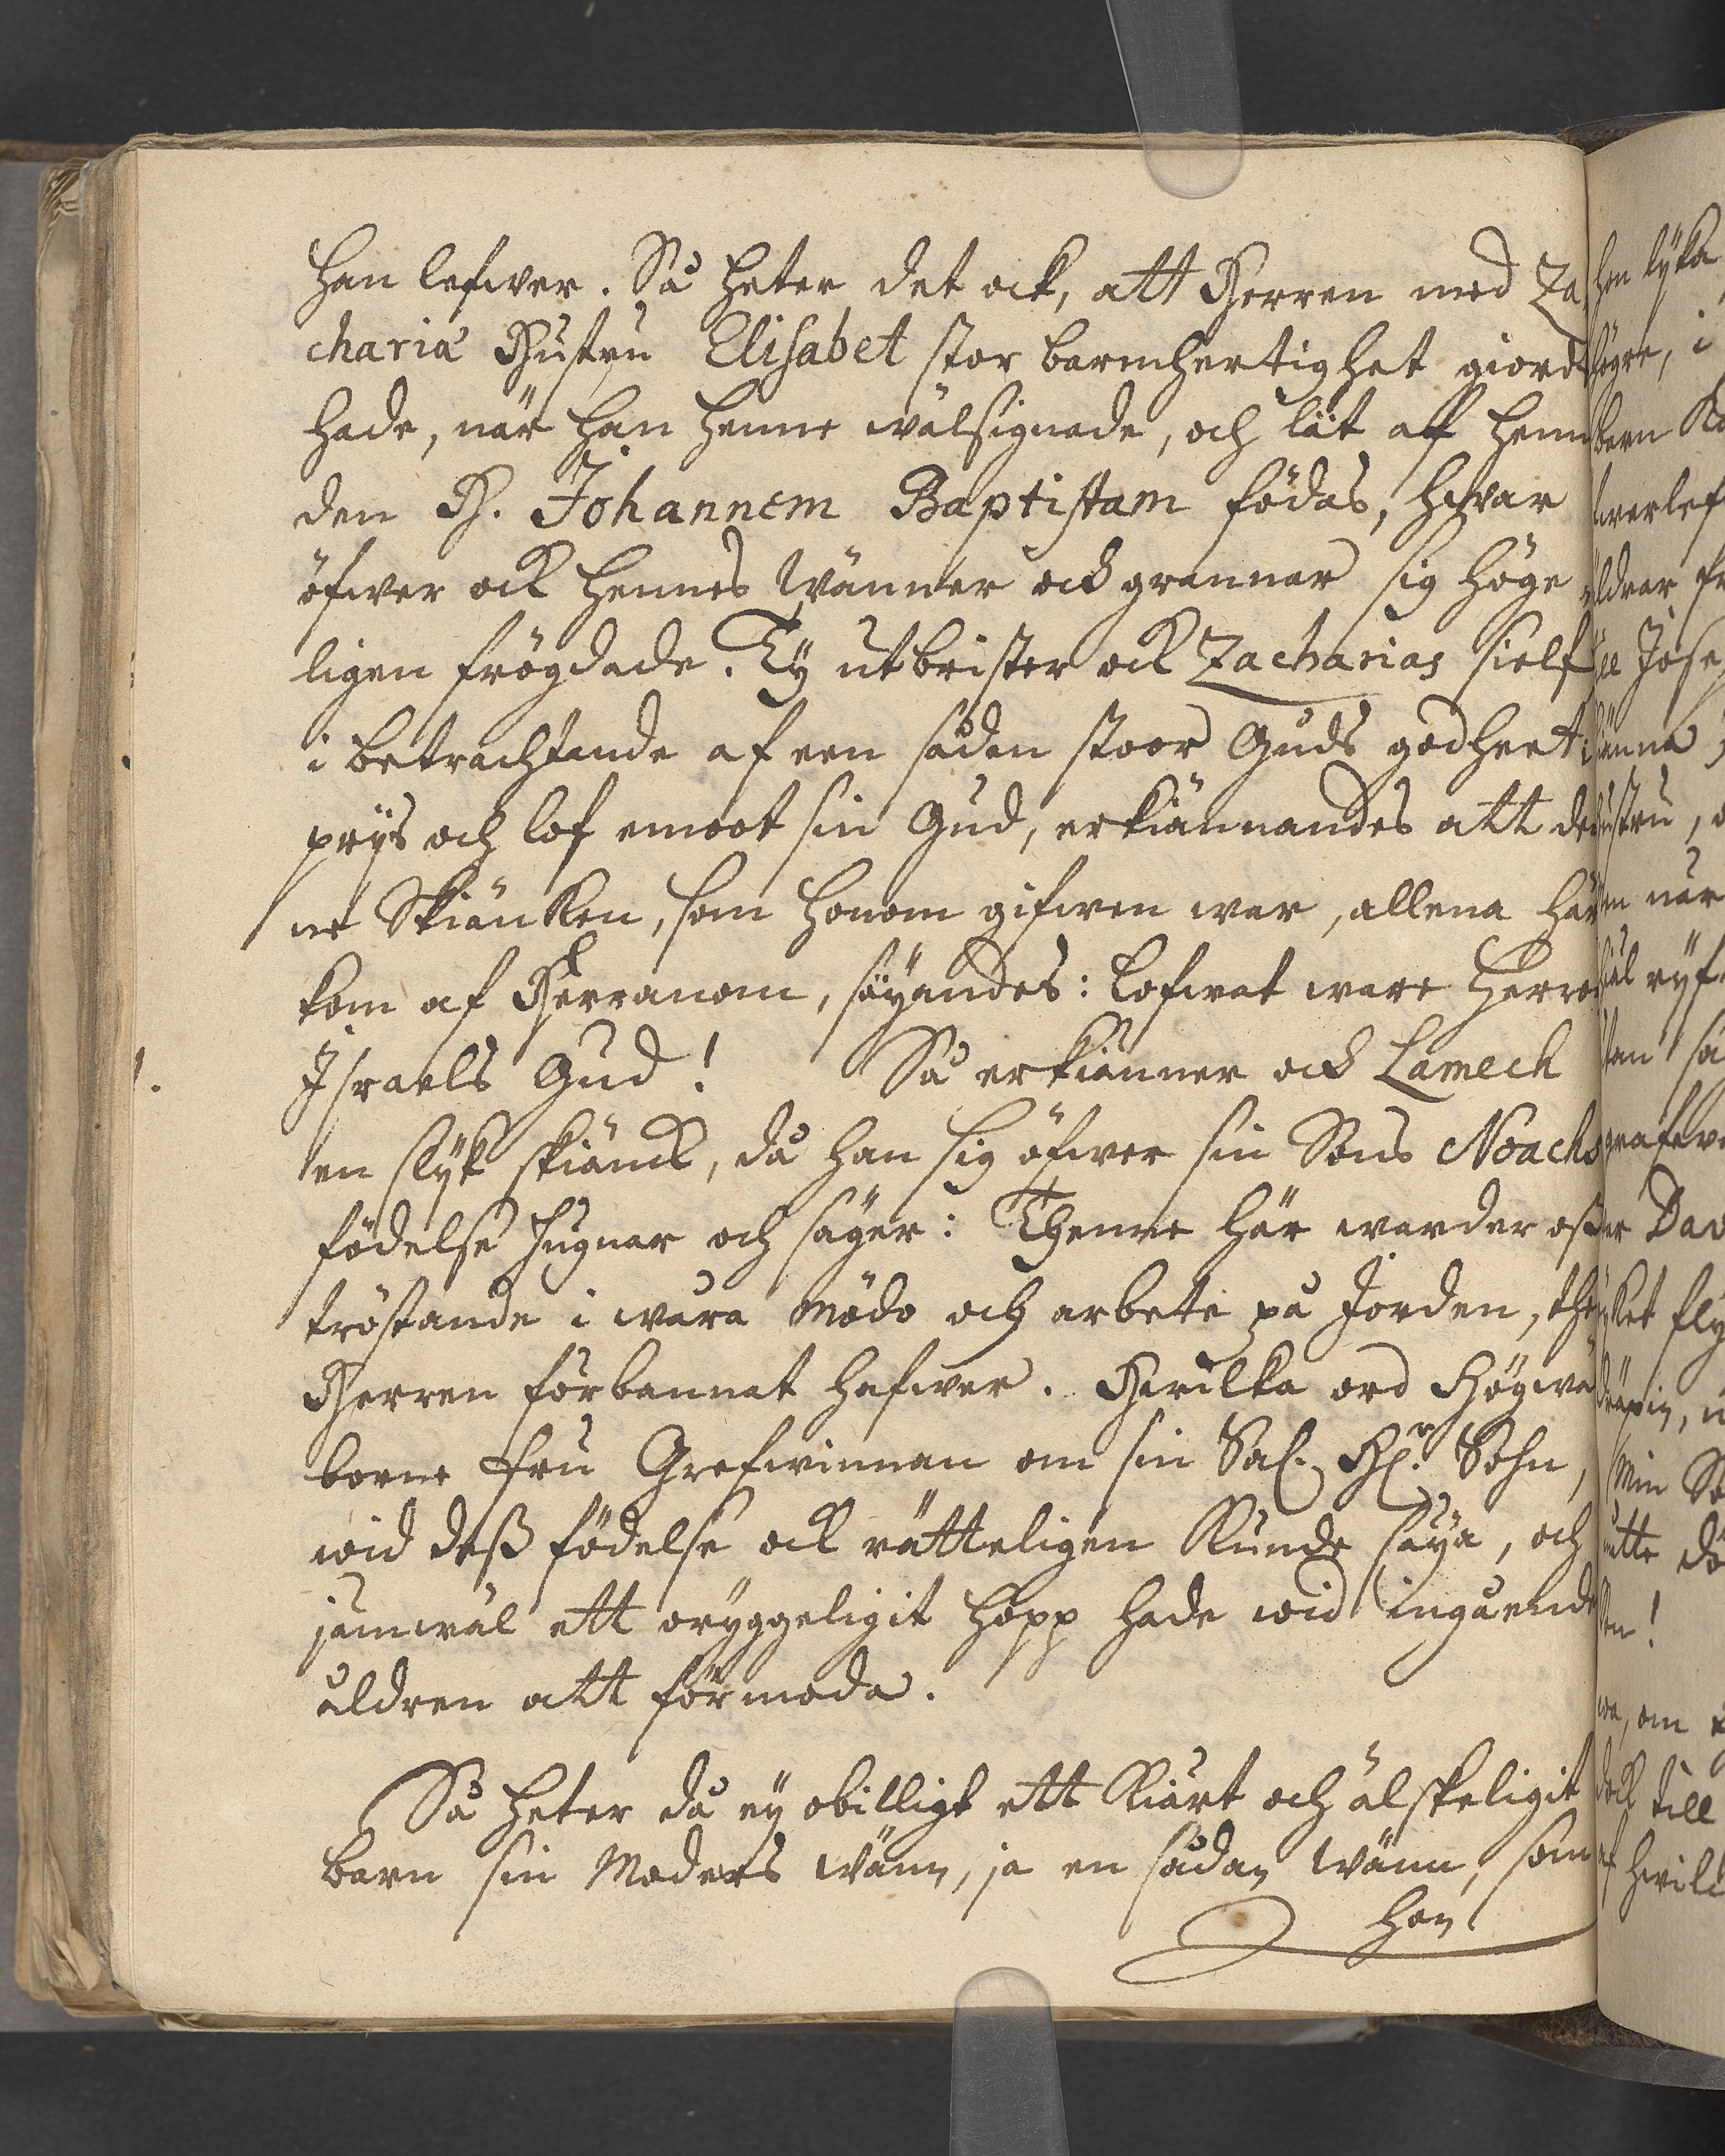 han lefwer. Så heter det ock, att Herren med Za
chariæ Hustru Elisabet stor barmhertighet giordt
hade, när han henne wälsignade, och lät aff henne
den H. Johannem Baptistam födas, hwar
öfwer ock hennes Wänner ock grannar sig höge
ligen frögdade. Ty utbrister ock Zacharias sielf
i betrachtande af een sådan stoor Guds godheet i
prijs och lof emoot sin Gud, erkiännandes att den
ne Skiäncken, som honom gifwen war, allena här
kom af Herranom, säyandes: Lofwat ware Herren
Israels Gud! Så erkiänner ock Lamech
en slijk skiänck, då han sig öfwer sin Sons Noachs
födelse hugnar och säger: Thenne här warder oss
tröstande i wåra Mödo och arbete på Jorden, the
Herren förbannat hafwer. Hwilka ord Högwäl
borne Fru Grefwinnan om sin Sal. H. Sohn,
wid dess födelse ock rätteligen Kunde säija, och
jämwäl ett oryggeligit hopp hade wid ingående
åldren att förmoda.
Så heter då ey obilligt ett Kiärt och älskeligit
barn sin Moders wänn, ja en sådan Wänn, som
hon